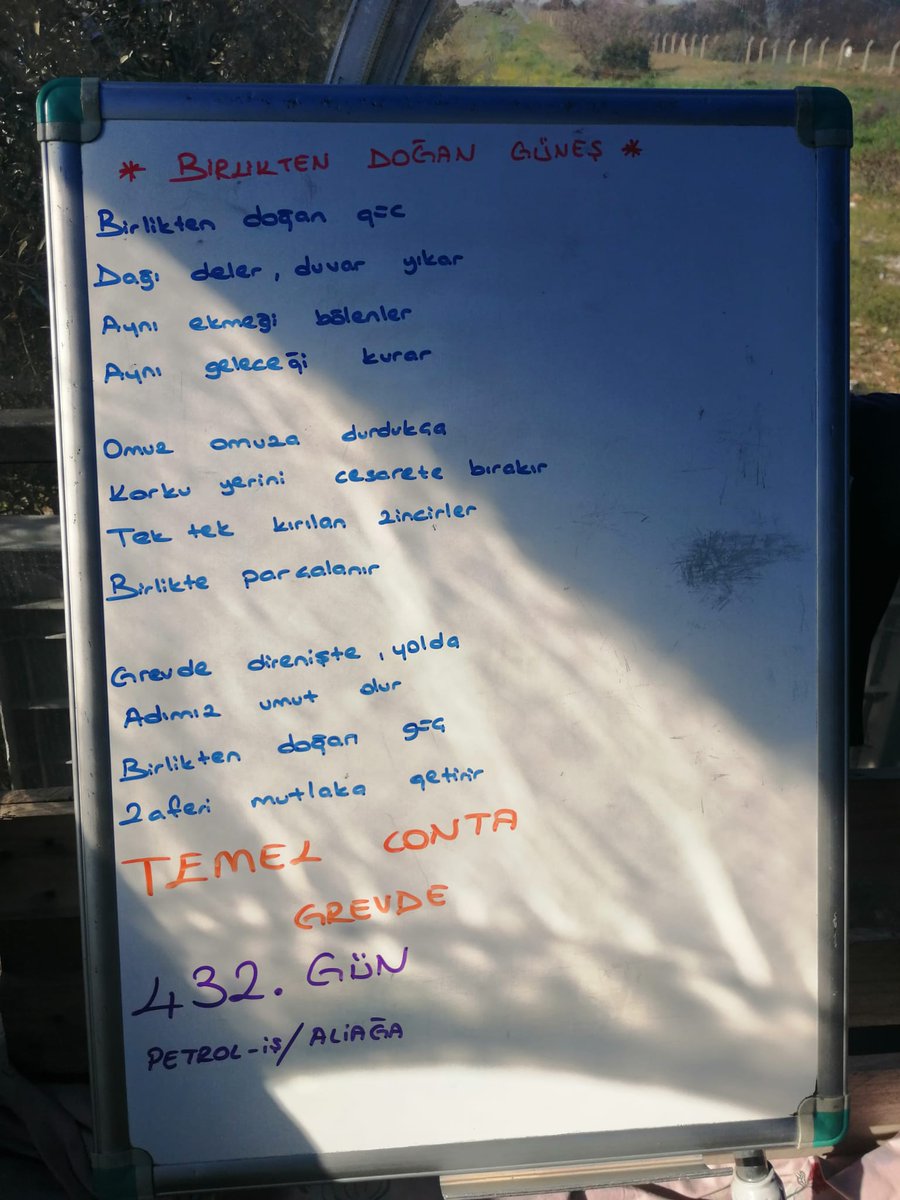 * BİRLİKTEN DOĞAN GÜNEŞ *
Birlikten doğan güc
Dağı deler, duvar yıkar
Aynı ekmeği bölenler
Aynı geleceği kurar
Omuz omuza durdukça
Korku yerini cesarete bırakır
Tek tek kırılan zincirler
Birlikte parçalanır
Grevde direnişte, yolda
Adımız umut olur
Birlikten doğan güç
Zaferi mutlaka getirir
TEMEL CONTA
GREVDE
432. GÜN
PETROL-İŞ/ALİAĞA